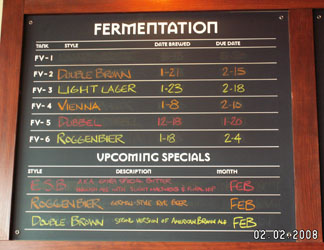 FERMENTATION
TANK STYLE DATE BREWED DUE DATE
FV-1
FV-2 DOUBLE BROWN 1-21 2-15
FV-3 LIGHT LAGER 1-23 2-18
FV-4 VIENNA 1-8 2-15
FV-5 DUBBEL 12-18 1-20
FV-6 ROGGENBIER 1-18 2-4
UPCOMING SPECIALS
STYLE DESCRIPTION MONTH
E.S.B. A.K.A. SPECIAL BITTER FEB
ROGGENBIER GERMAN-STYLE RYE BEER FEB
DOUBLE BROWN STRONG VERSION OF AMERICAN BROWN ALE FEB
02-02-2008